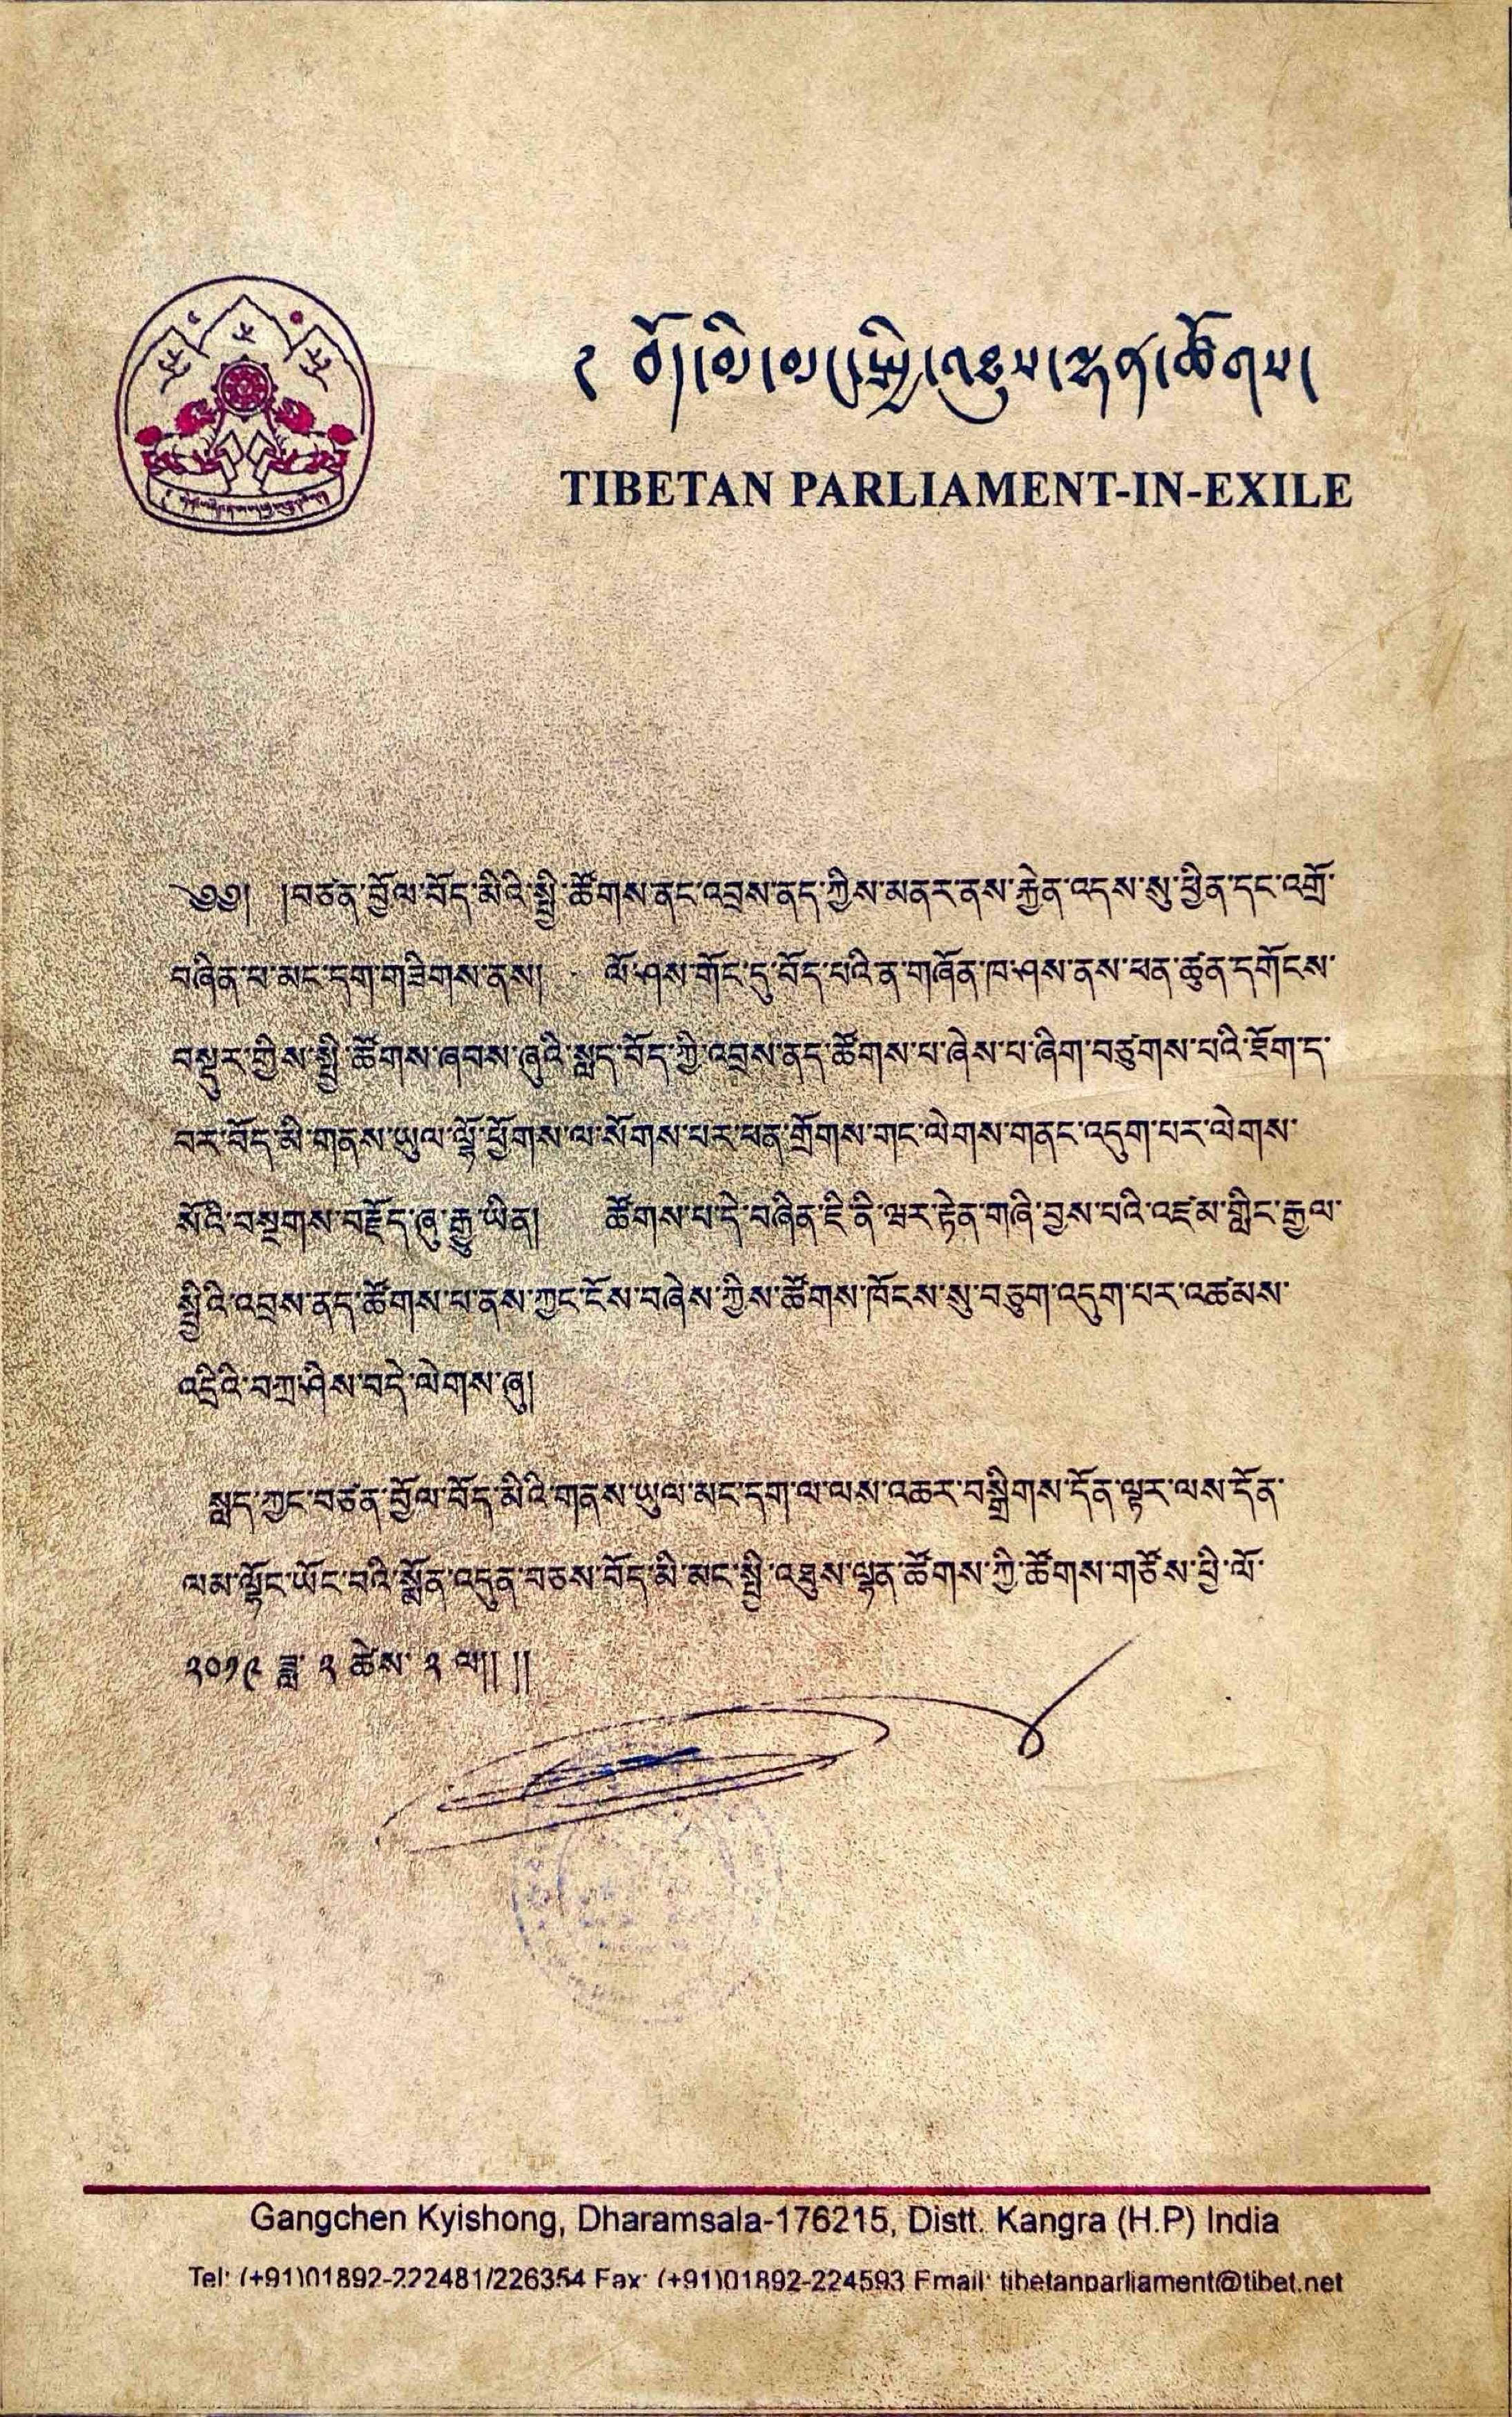 ༄ བོད་མི་མང་སྤྱི་འཐུས་ལྷན་ཚོགས།
TIBETAN PARLIAMENT-IN-EXILE
༄༅། །བཙན་བྱོལ་བོད་མིའི་སྤྱི་ཚོགས་ནང་འབྲས་ནད་ཀྱིས་མནར་ནས་རྐྱེན་འདས་སུ་ཕྱིན་དང་འགྲོ་
བཞིན་པ་མང་དག་གཟིགས་ནས། ལོ་ཤས་གོང་དུ་བོད་པའི་ན་གཞོན་ཁ་ཤས་ནས་ཕན་ཚུན་དགོངས་
བསྡུར་གྱིས་སྤྱི་ཚོགས་ཞབས་ཞུའི་སླད་བོད་ཀྱི་འབྲས་ནད་ཚོགས་པ་ཞེས་པ་ཞིག་བཙུགས་པའི་ཐོག་ད་
བར་བོད་མི་གནས་ཡུལ་ལྷོ་ཕྱོགས་ལ་སོགས་པར་ཕན་གྲོགས་གང་ལེགས་གནང་འདུག་པར་ལེགས་
སོའི་བསྔགས་བརྗོད་ཞུ་རྒྱུ་ཡིན། ཚོགས་པ་དེ་བཞིན་ཇི་ནི་ཝར་རྟེན་གཞི་བྱས་པའི་འཛམ་གླིང་རྒྱལ་
སྤྱིའི་འབྲས་ནད་ཚོགས་པ་ནས་ཀྱང་ངོས་བཞེས་ཀྱིས་ཚོགས་ཁོངས་སུ་བཅུག་འདུག་པར་འཚམས་
འདྲིའི་བཀྲ་ཤིས་བདེ་ལེགས་ཞུ།
སླད་ཀྱང་བཙན་བྱོལ་བོད་མིའི་གནས་ཡུལ་མང་དག་ལ་ལས་འཆར་བསྒྲིགས་དོན་ལྟར་ལས་དོན་
ལམ་ལྷོང་ཡོང་བའི་སྨོན་འདུན་བཅས་བོད་མི་མང་སྤྱི་འཐུས་ལྷན་ཚོགས་ཀྱི་ཚོགས་གཙོས་ཕྱི་ལོ་
༢༠༡༩ ཟླ་ ༢ ཚེས་ ༢ ལ།། །།
Gangchen Kyishong, Dharamsala-176215, Distt. Kangra (H.P) India
Tel: (+91)01892-222481/226354 Fax: (+91)01892-224593 Email: tibetanparliament@tibet.net